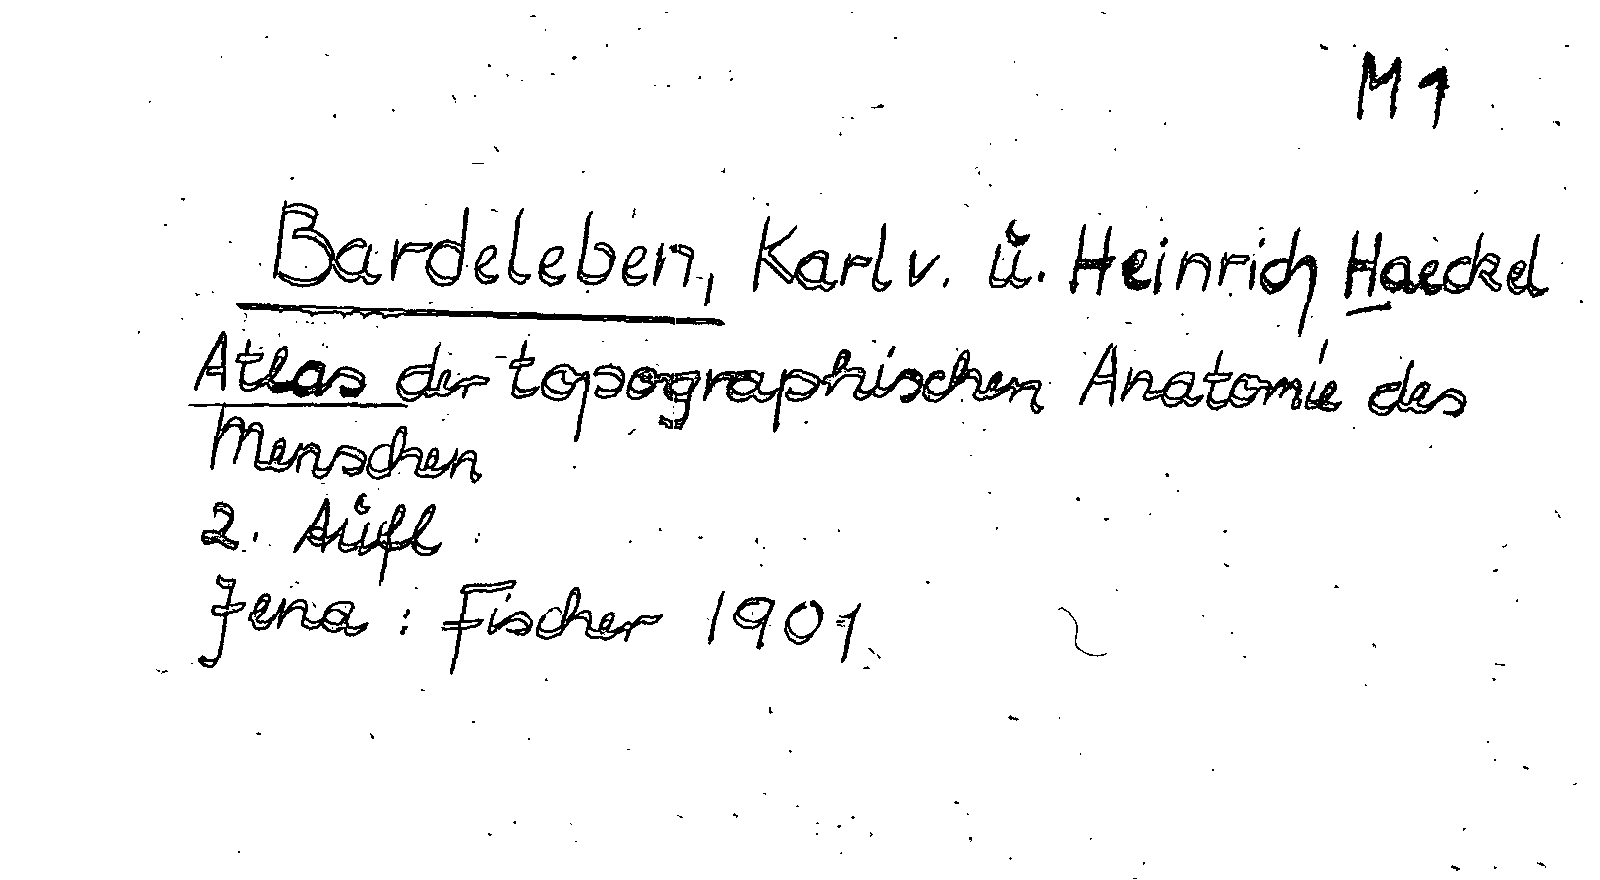 M 1
Bardeleben, Karl v. u. Heinrich Haeckel
Atlas der topographischen Anatomie des
Menschen
2. Aufl
Jena : Fischer 1901